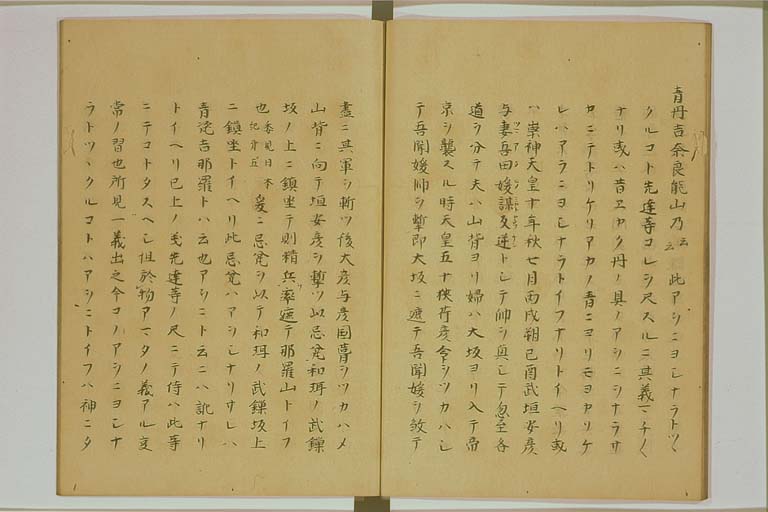 青丹吉奈良能山乃云云 此アシニヨシナラトツヽ
クルコト先達等コレヲ尺スルニ其義マチ〱
ナリ或ハ昔ヱカク丹ノ具ノアシニヨシナラサ
カニテトリケリアカノ青ニヨリモヨカリケ
レハアラニヨシナラトイフナリトイヘリ或
ハ崇神天皇十年秋七月丙戌朔己酉武垣安彦
与妻吾田媛謀反逆トシテ師ヲ興シテ忽至各
道ヲ分テ夫ハ山背ヨリ婦ハ大坂ヨリ入テ帝
京ヲ襲スル時天皇五十狹芹彦命ヲツカハシ
テ吾田媛師ヲ撃即大坂ニ遮テ吾田媛ヲ敓テ
盡ニ其軍ヲ斬ツ後大彦与彦国葺ヲツカハメ
山背ニ向テ垣安彦ヲ撃ツ以忌瓮和珥ノ武鐰
坂ノ上ニ鎮坐テ則精兵率遮テ那羅山トイフ
也委見日本紀第五 爰ニ忌瓮ヲ以テ和珥ノ武鐰坂上
ニ鎮坐トイヘリ此忌瓮ハアシシナリサレハ
青瓷吉那羅トハ云也アシニト云ニハ訛ナリ
トイヘリ已上ノ先達等ノ尺ニテ侍ハ此等
ニテコトタスヘシ但於物アマタノ義アル変
常ノ習也所見一義出之今コノアシニヨシナ
ラトツヽクルコトハアシニトイフハ神ニタ